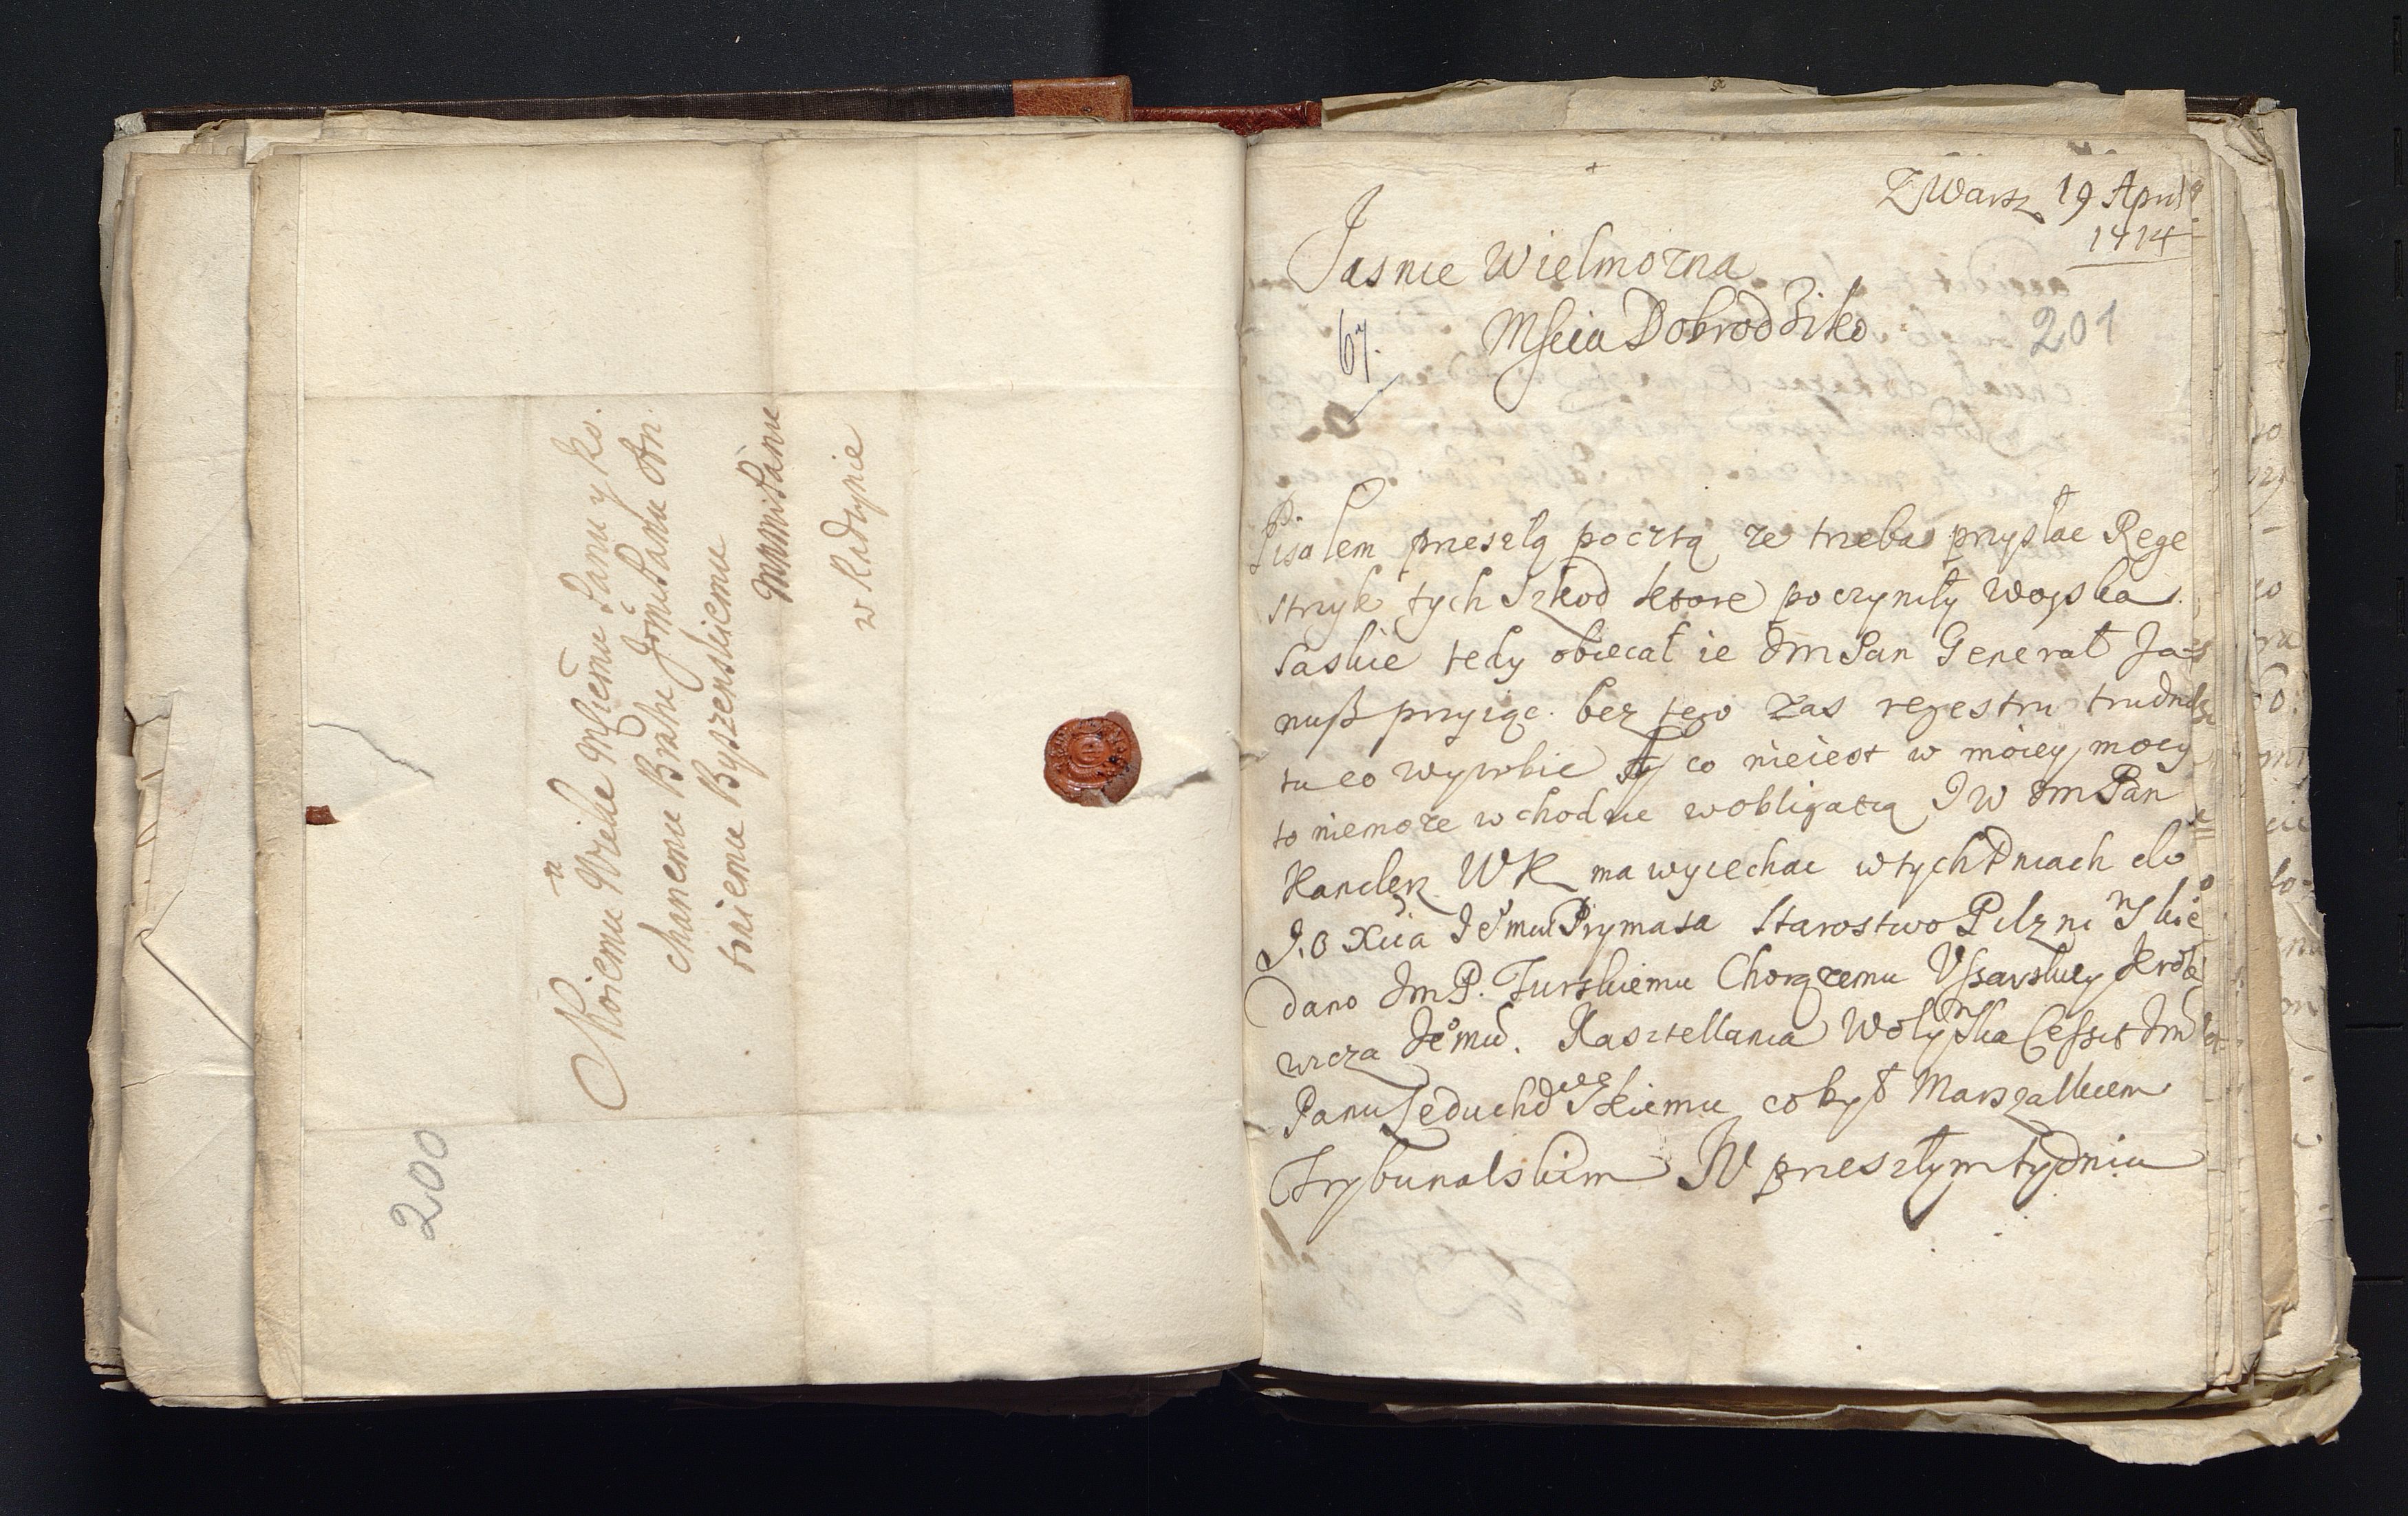 Moiemu Wielce Mściemu Panu y ko.
chanemu Bratu Jęmści Panu An
toniemu Byszenskiemu
MMMściPanu
w Radzynie
200
Z Warsz 19 April
1714
Jasnie Wielmozna
Mscia Dobrodziko
201
67.
Pisałem przeszłą pocztą ze trzeba przysłac Rege
strzyk tych szkod ktore poczyniły woyska
saskie tedy obiecał ie Jm Pan Generał Ja=
nuß przyiąc. bez tego zas regestru trudno
tu co wyrobic co nieiest w moiey mocy
to niemoze wchodzic w obligatią J W Jm Pan
Kanclerz W K ma wyiechac w tych dniach do
J. O Xcia Jemci Prymasa Starostwo Pilznienskie
dano Jm P. Turskiemu Chorązemu Ussarskiey Krole
wicza Jemci. Kasztellania Wolynska Cessit Jm
Panu Leduchowskiemu co był Marszalkiem
Trybunalskim W przeszłym tydniu